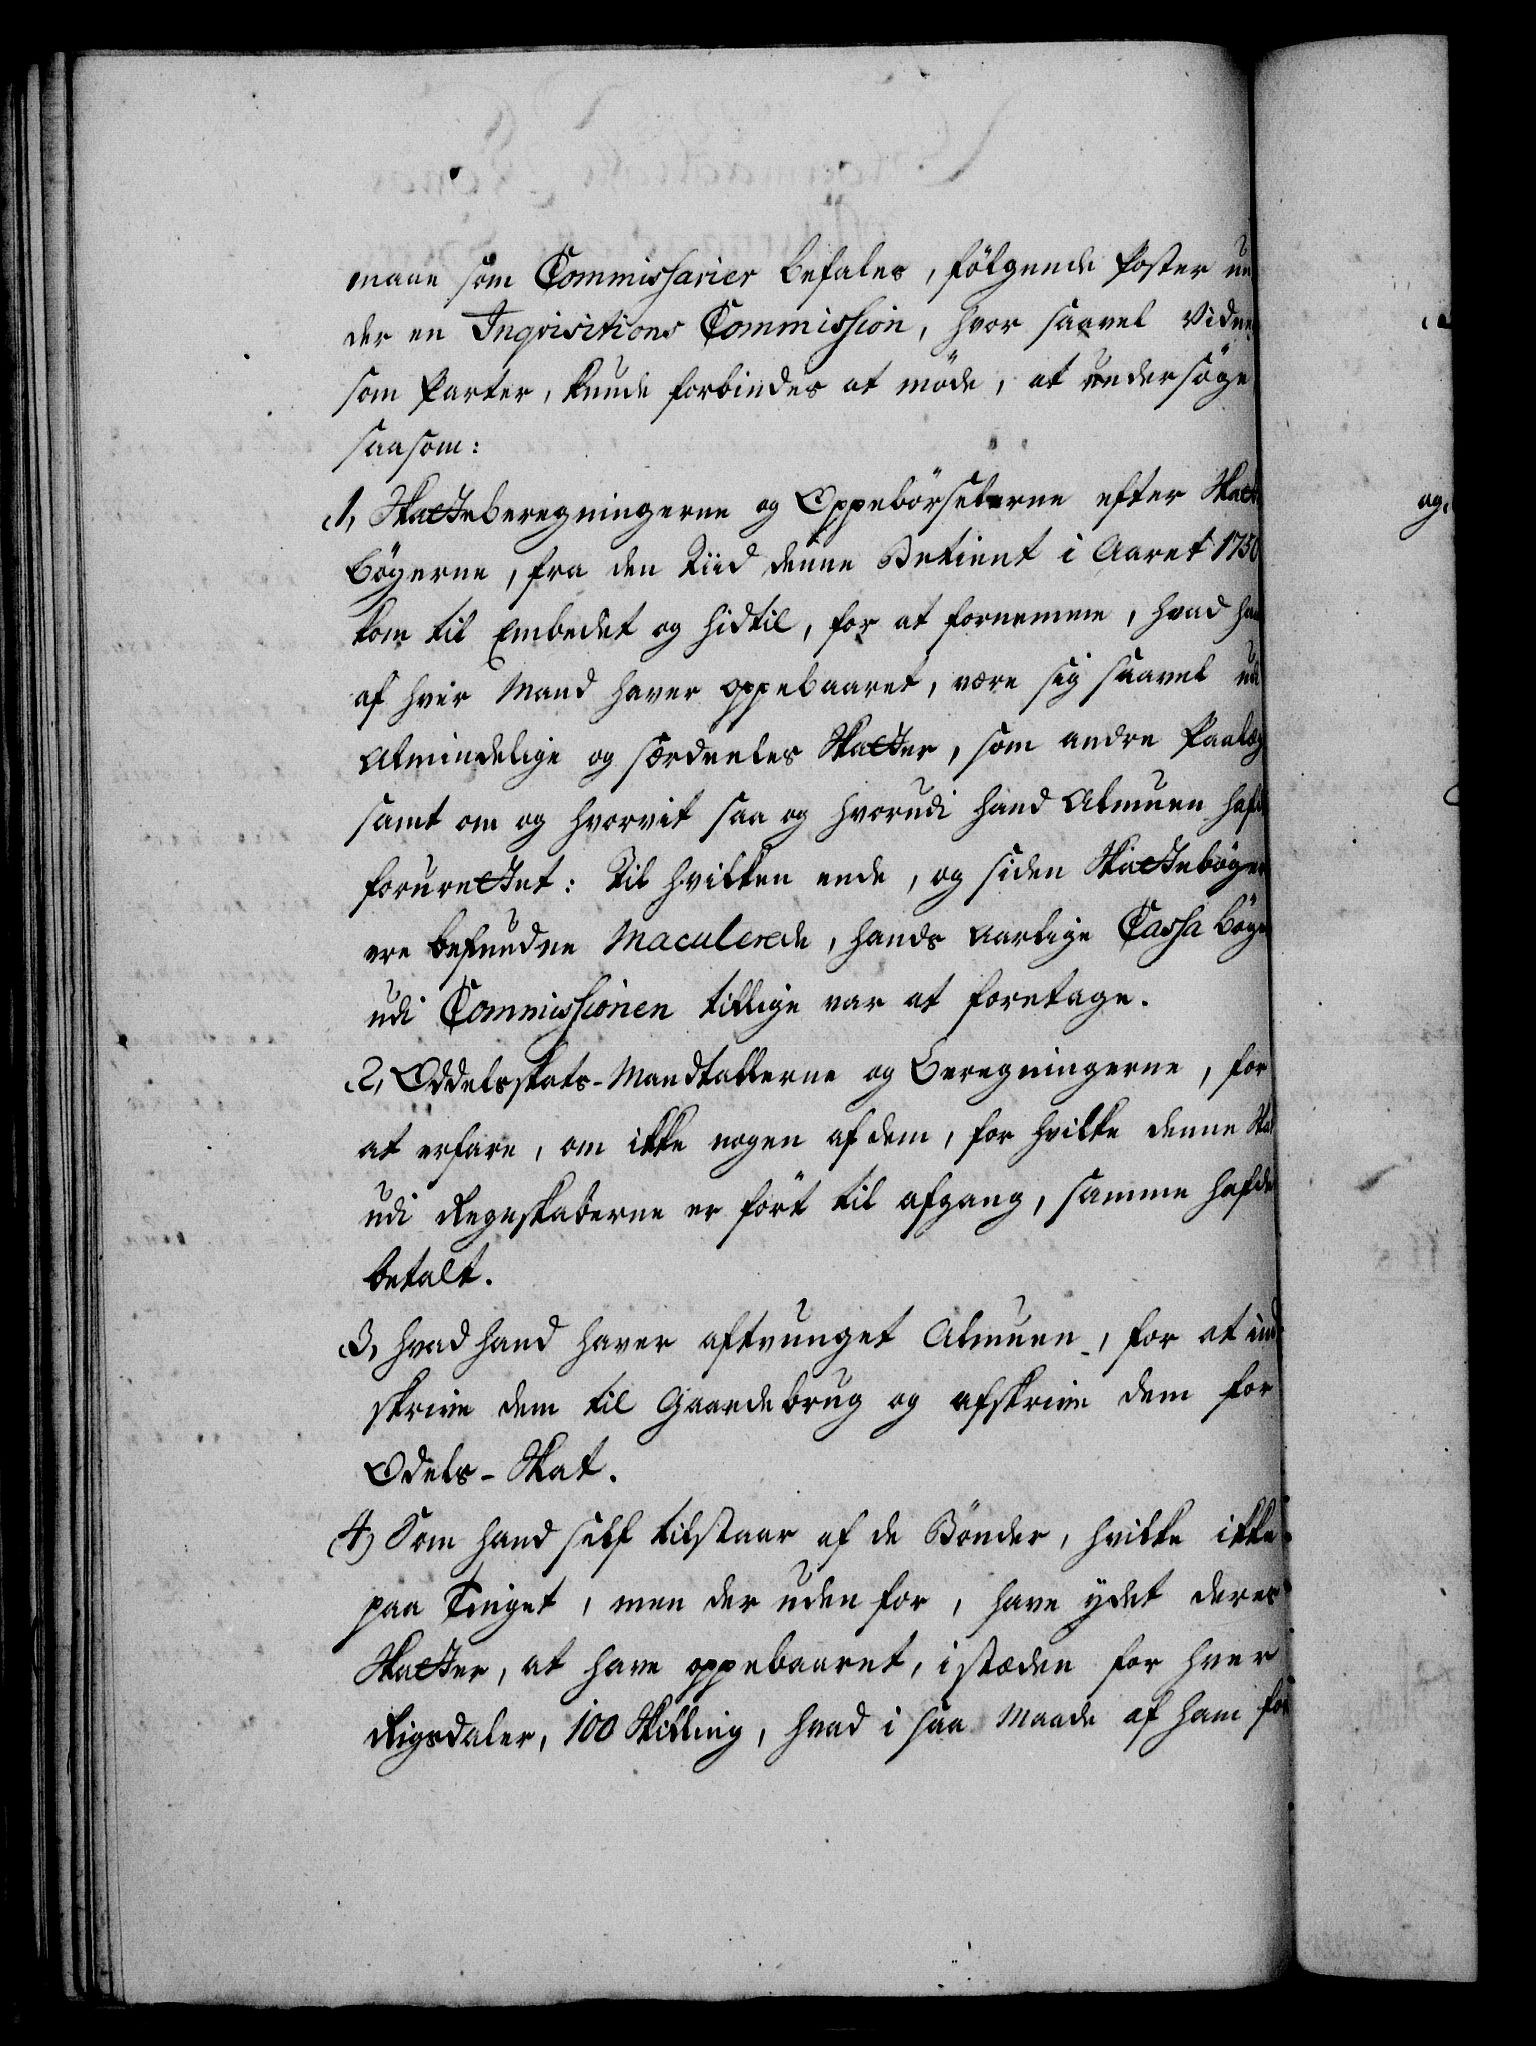 maae som Commissarier befales, fölgende Poster un
der en Inqvisitions Commission, hvor saavel Vidne
som Parter, kunde forbindes at möde, at undersöge
saasom:
1, Skatteberegningerne og Oppebörselerne efter Skatte
bögerne, fra den Tiid denne Betient i Aaret 1750
kom til Embedet og hidtil, for at fornemme, hvad han
af hver Mand haver oppebaaret, være sig saavel udi
Almindelige og særdeeles Skatter, som andre Paalæg
samt om og hvorvit saa og hvorudi hand Almuen hafde
forurettet: Til hvilken ende, og siden Skatteböger
ere befundne Maculerede, hands aarlige Cassa böger
udi Commissionen tillige var at foretage.
2, Oddelsskats-Mandtallerne og Beregningerne, for
at erfare, om ikke nogen af dem, for hvilke denne Skat
udi Regnskaberne er fört til afgang, samme hafde
betalt.
3, hvad hand haver aftvunget Almuen, for at ind
skrive dem til Gaardebrug og afskrive dem for
Odels-Skat.
4) Som hand self tilstaar af de Bönder, hvilke ikke
paa Tinget, men der uden for, have ydet deres
Skatter, at have oppebaaret, istæden for hver
Rigsdaler, 100 Skilling, hvad i saa Maade af ham for
og.